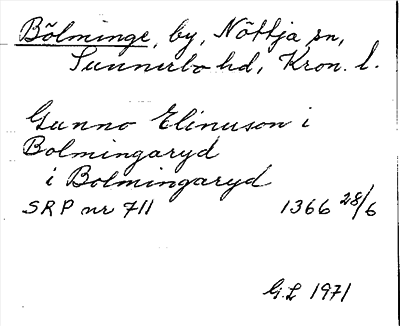 Bölminge, by, Nöttja sn,
Sunnerbo hd, Kron. l.
Gunno Elinuson i
Bolmingaryd
i Bolmingaryd
SRP nr 711 1366 28/6
G.L 1971